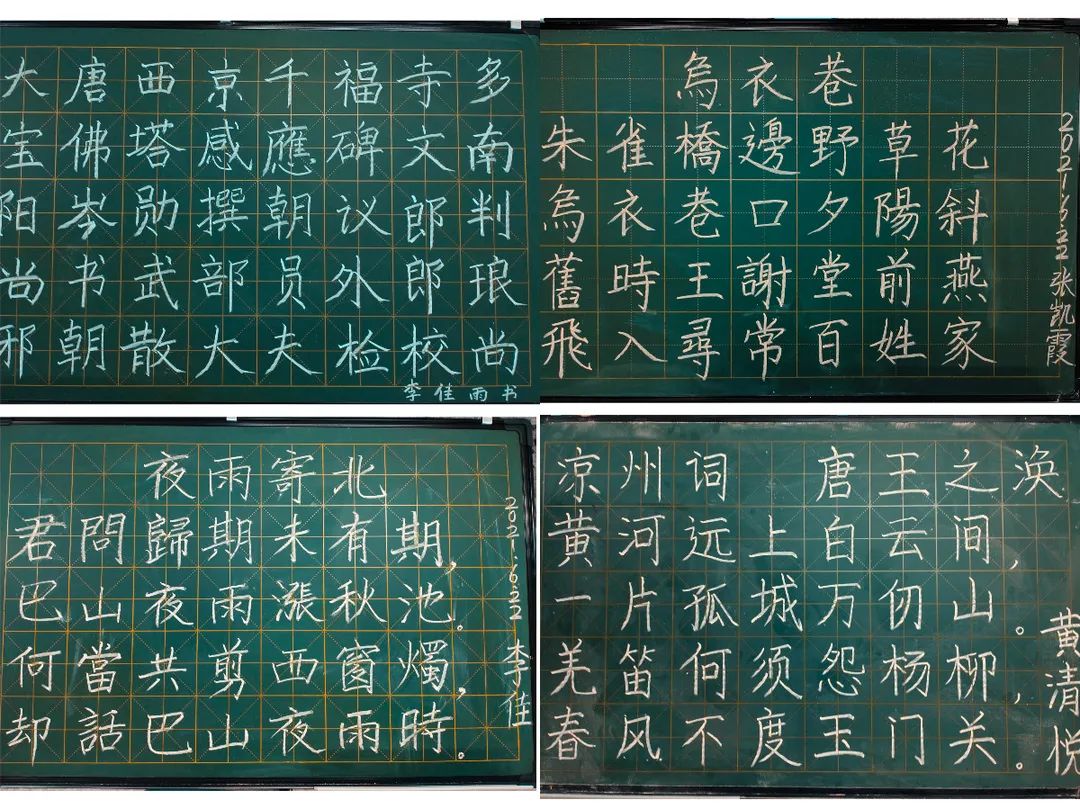 大唐西京千福寺多
宝佛塔感應碑文南
阳岑勋撰朝议郎判
尚书武部员外郎琅
邪朝散大夫检校尚
李佳雨书
烏衣巷
朱雀橋邊野草花
烏衣巷口夕陽斜
舊時王謝堂前燕
飛入尋常百姓家
2021.6.22 张凯霞
夜雨寄北
君問歸期未有期，
巴山夜雨漲秋池。
何當共剪西窗燭，
却話巴山夜雨時。
2021.6.22 李佳
凉州词 唐王之涣
黄河远上白云间，
一片孤城万仞山。
羌笛何须怨杨柳，
春风不度玉门关。
黄清悦